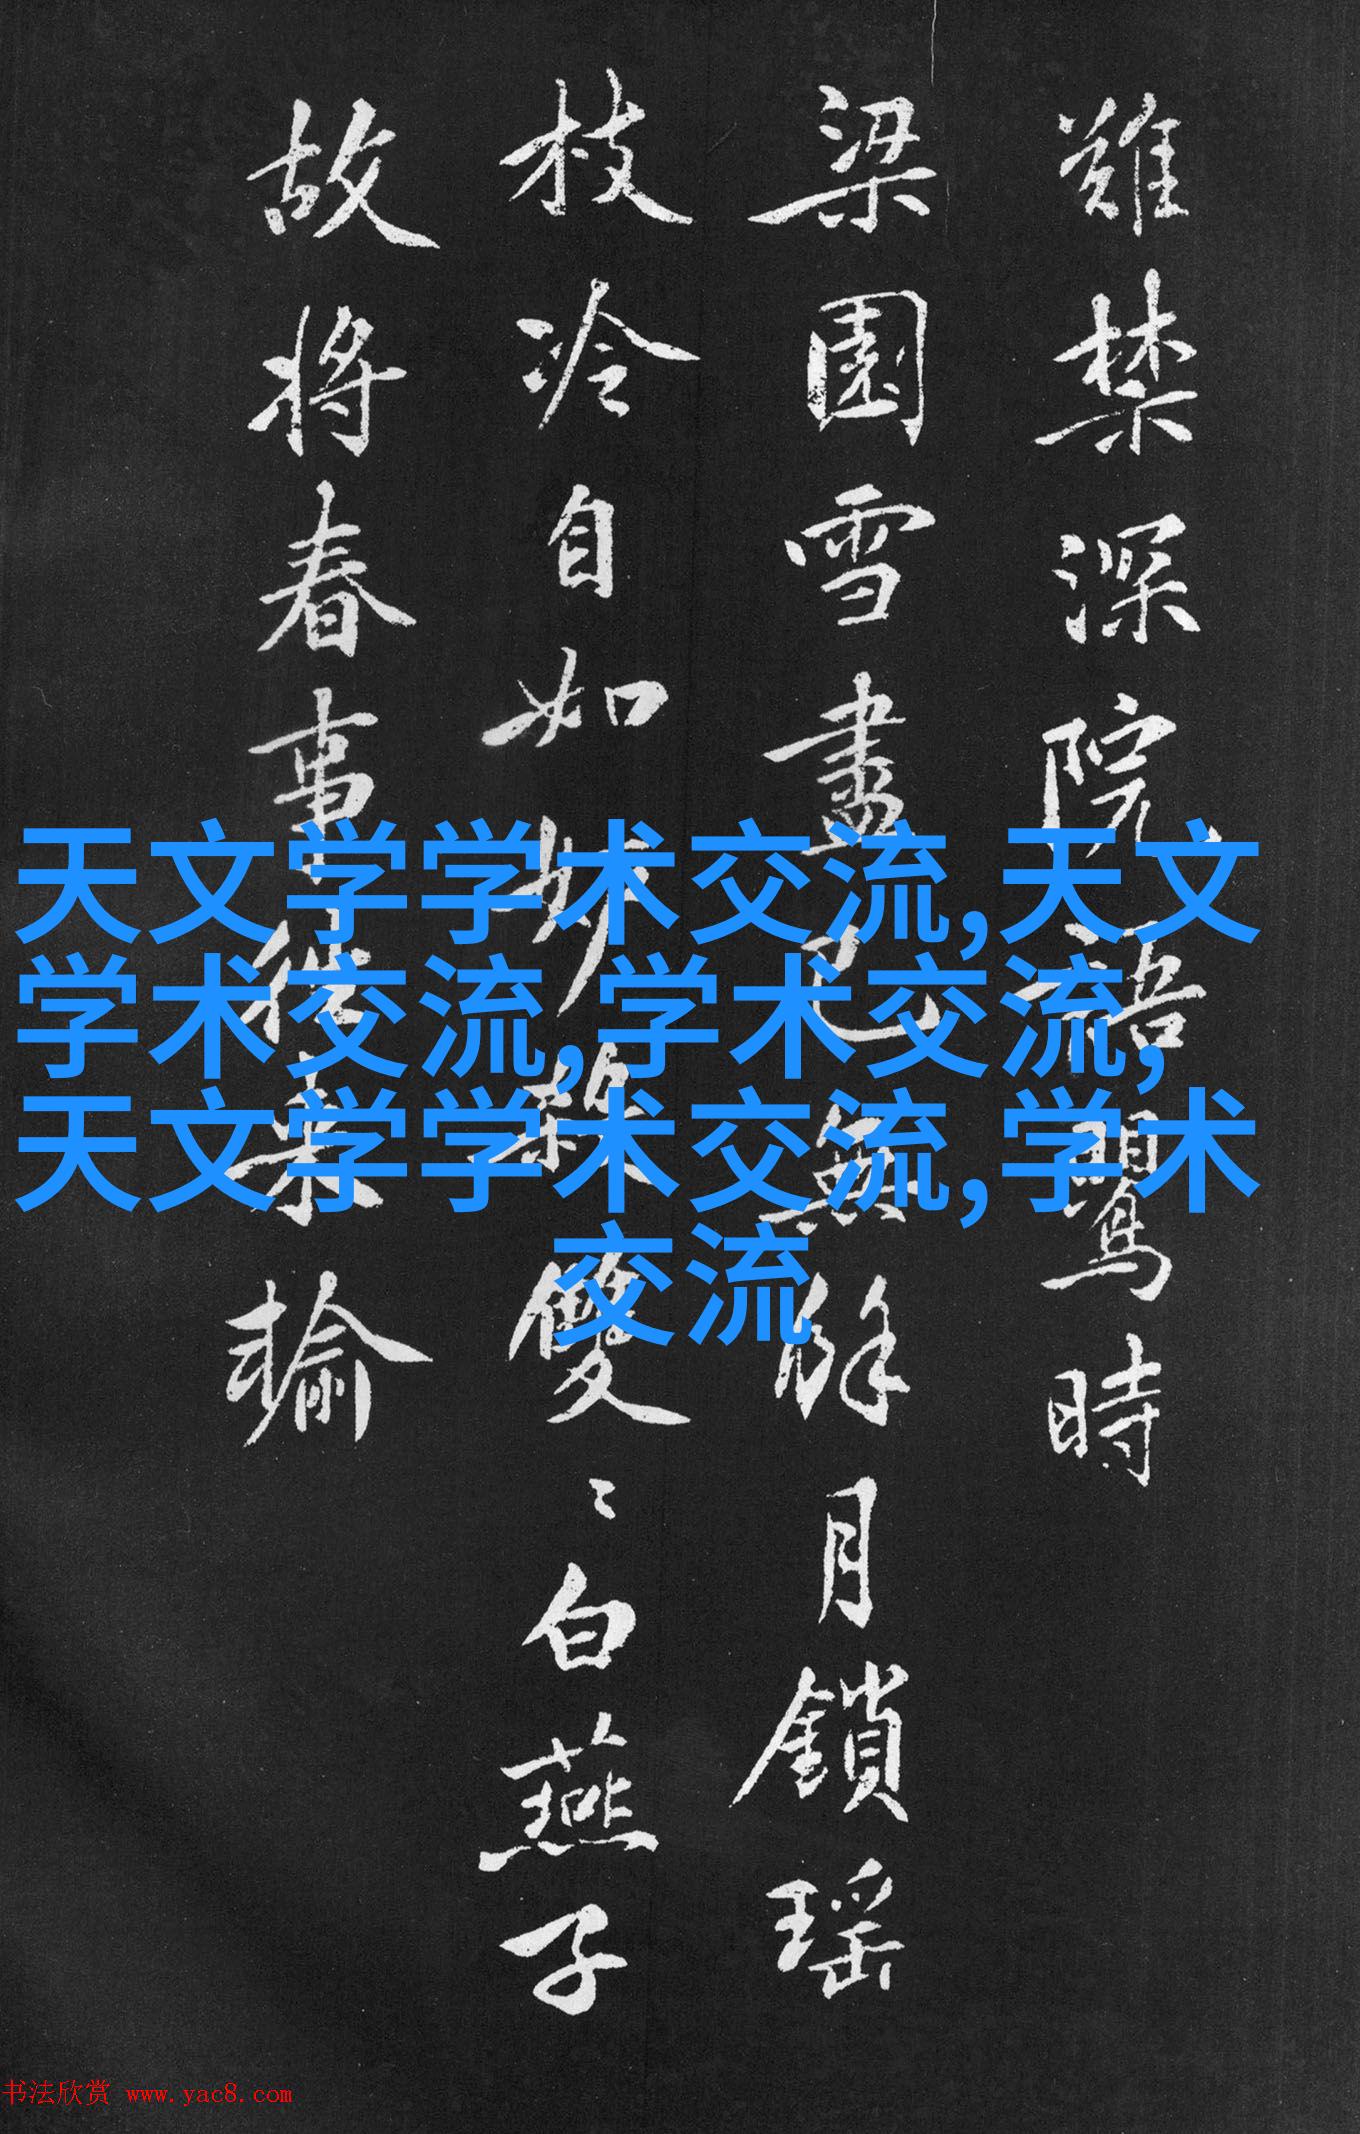 難禁深院語鸎時
梁園雪盡已無餘月鎖瑶
枝冷自如妙殺雙〻白燕子
故將春事
天文学学术交流,天文
学术交流,学术交流,
天文学学术交流,学术
交流
书法欣赏 www.yac8.com